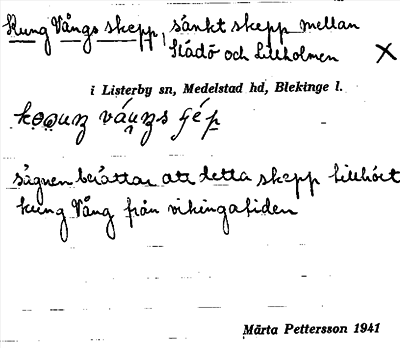 Kung Vångs skepp, sänkt skepp mellan
Slädö och Lillholmen
i Listerby sn, Medelstad hd, Blekinge l.
sägnen berättar att detta skepp tillhört
kung Vång från vikingatiden
Märta Pettersson 1941